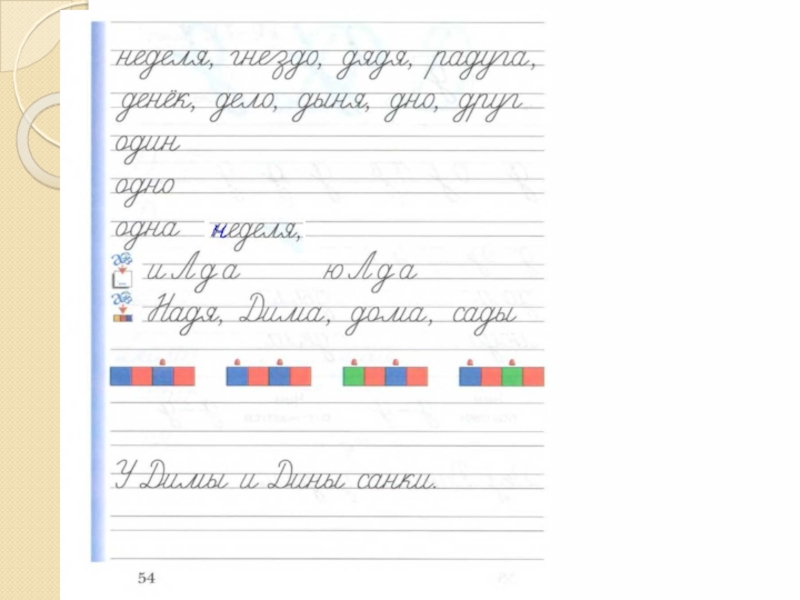 неделя, гнездо, дядя, радуга,
денёк, дело, дыня, дно, друг
один
одно
одна неделя,
иЛда юЛда
Надя, Дима, дома, сады
У Димы и Дины санки.
54